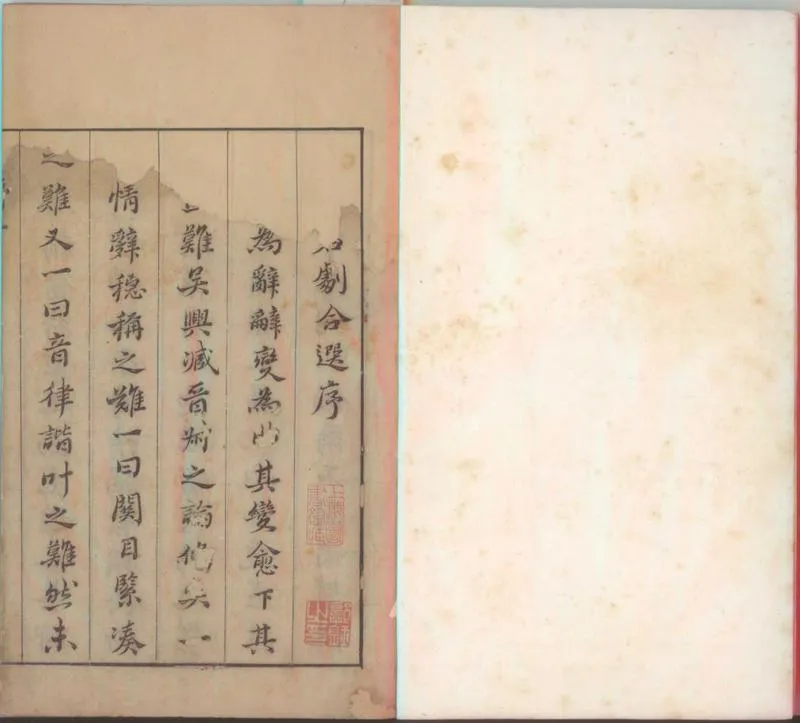 劇合選序
為辭辭變為曲其變愈下其
難吳興臧晉叔之論備矣一
情辭穩稱之難一曰關目緊湊
之難又一曰音律諧叶之難然未
上海圖書館藏